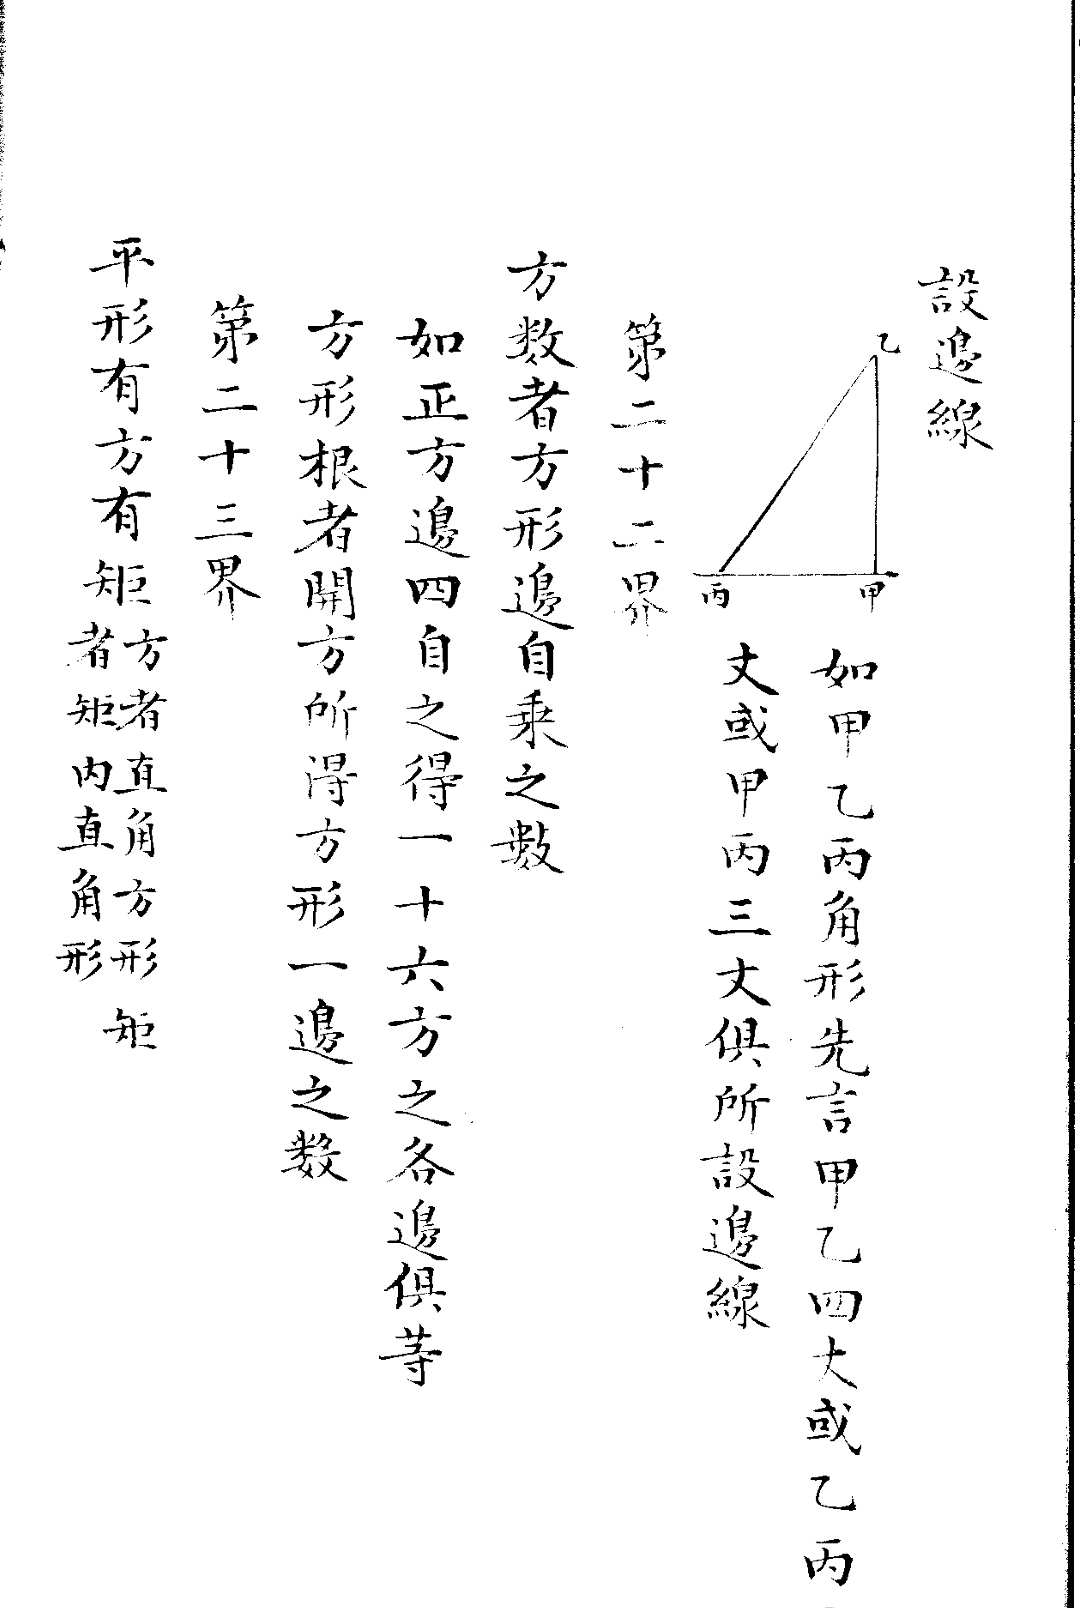 設邊線
乙
甲
丙
如甲乙丙角形先言甲乙四大或乙丙
丈或甲丙三丈俱所設邊線
第二十二界
方数者方形邊自乘之數
如正方邊四自之得一十六方之各邊俱等
方形根者開方所淂方形一邊之数
第二十三界
平形有方有矩方者直角方形矩
者矩内直角形